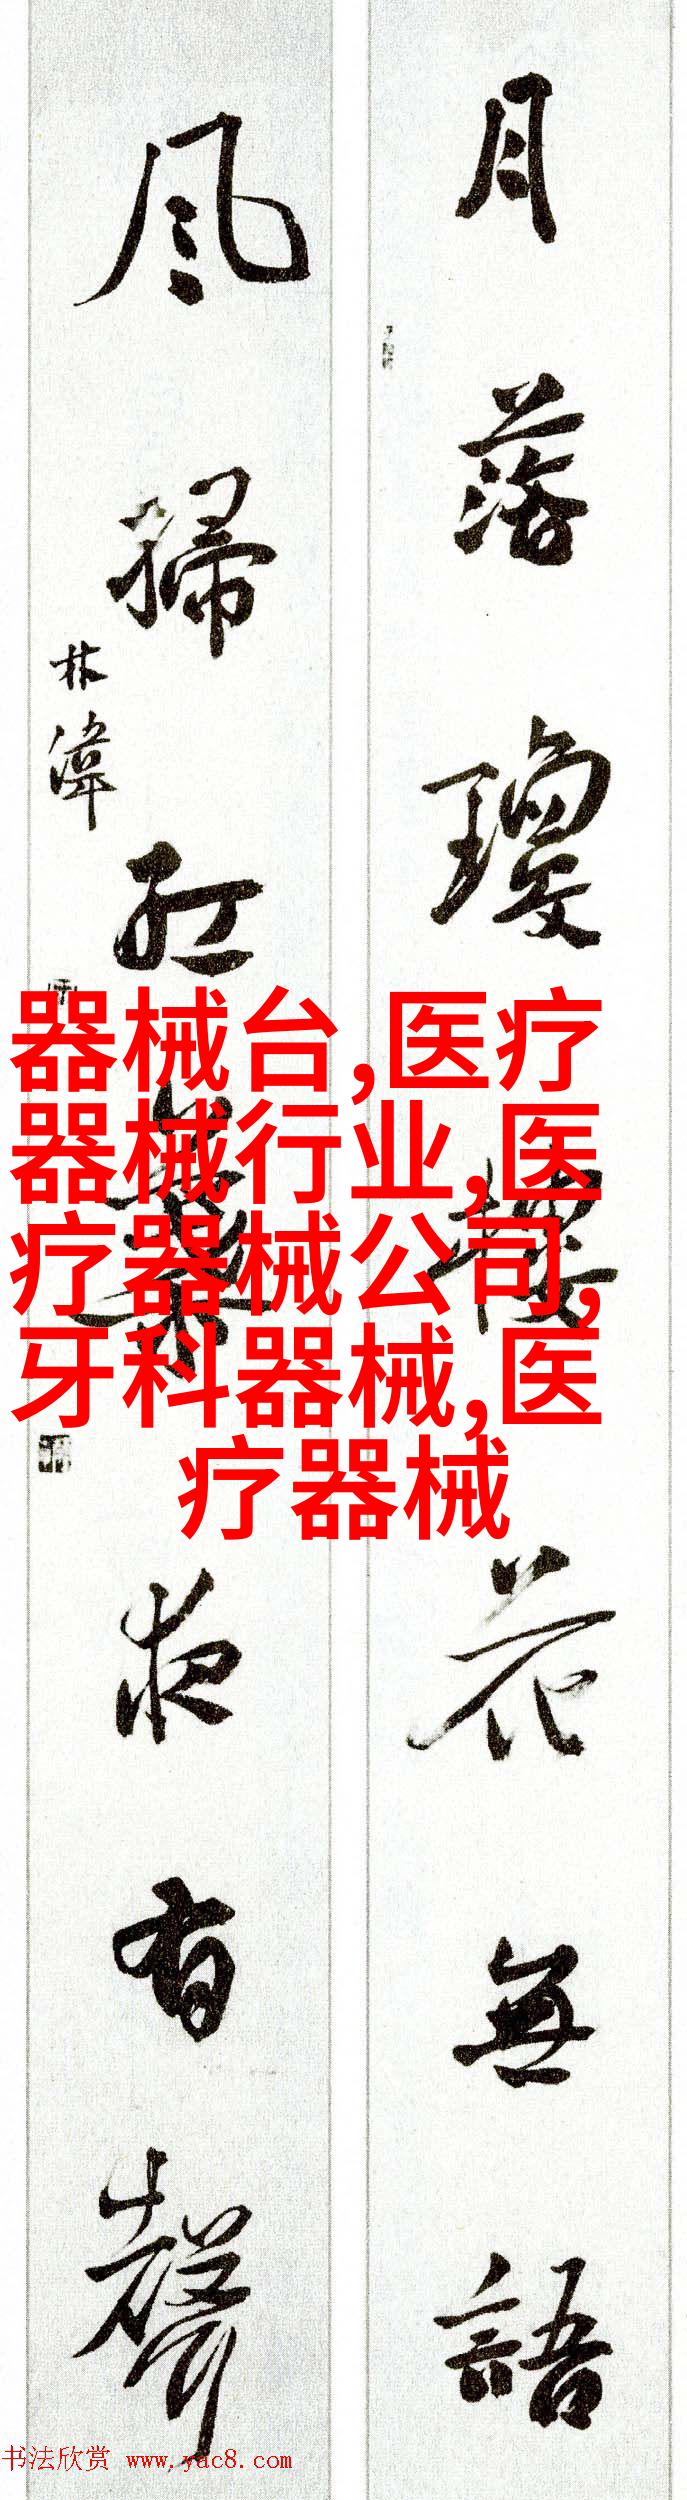 月落瓊樓花無語
風掃紅葉夜有聲
林偉
器械台,医疗
器械行业,医
疗器械公司,
牙科器械,医
疗器械
书法欣赏 www.yac8.com